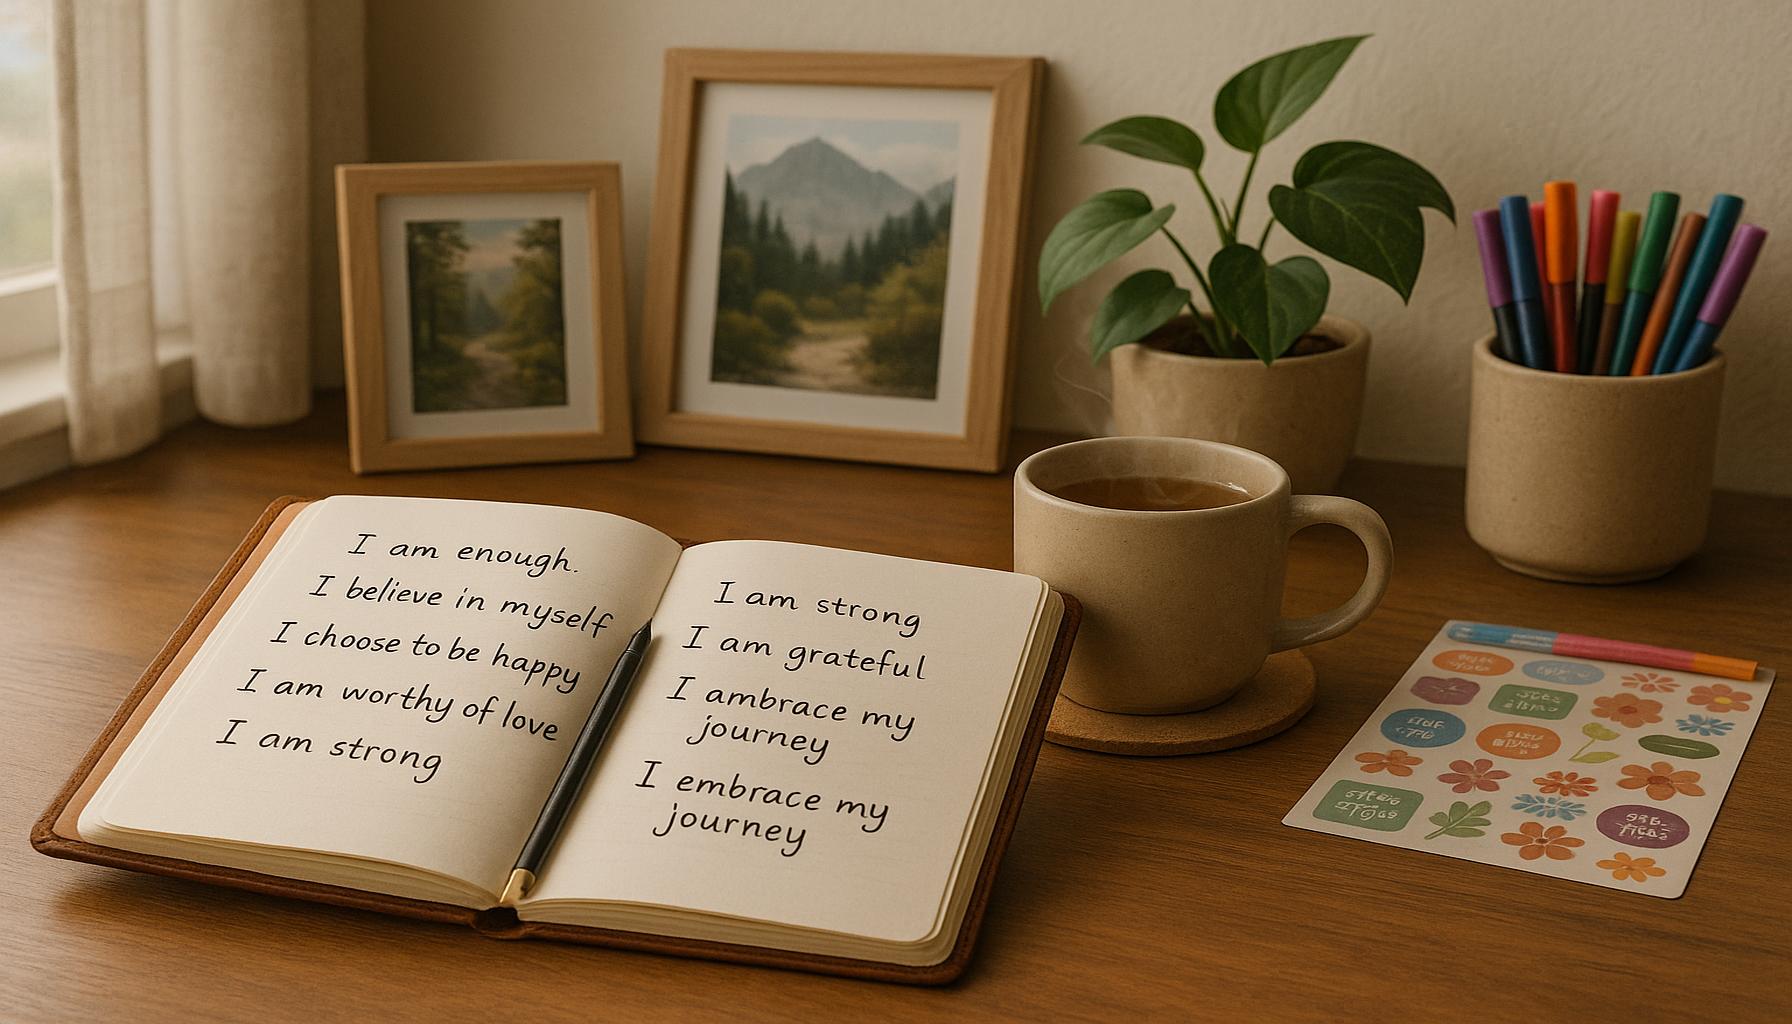 I am enough.
I believe in myself
I choose to be happy
I am worthy of love
I am strong
I am strong
I am grateful
I ambrace my
journey
I embrace my
journey